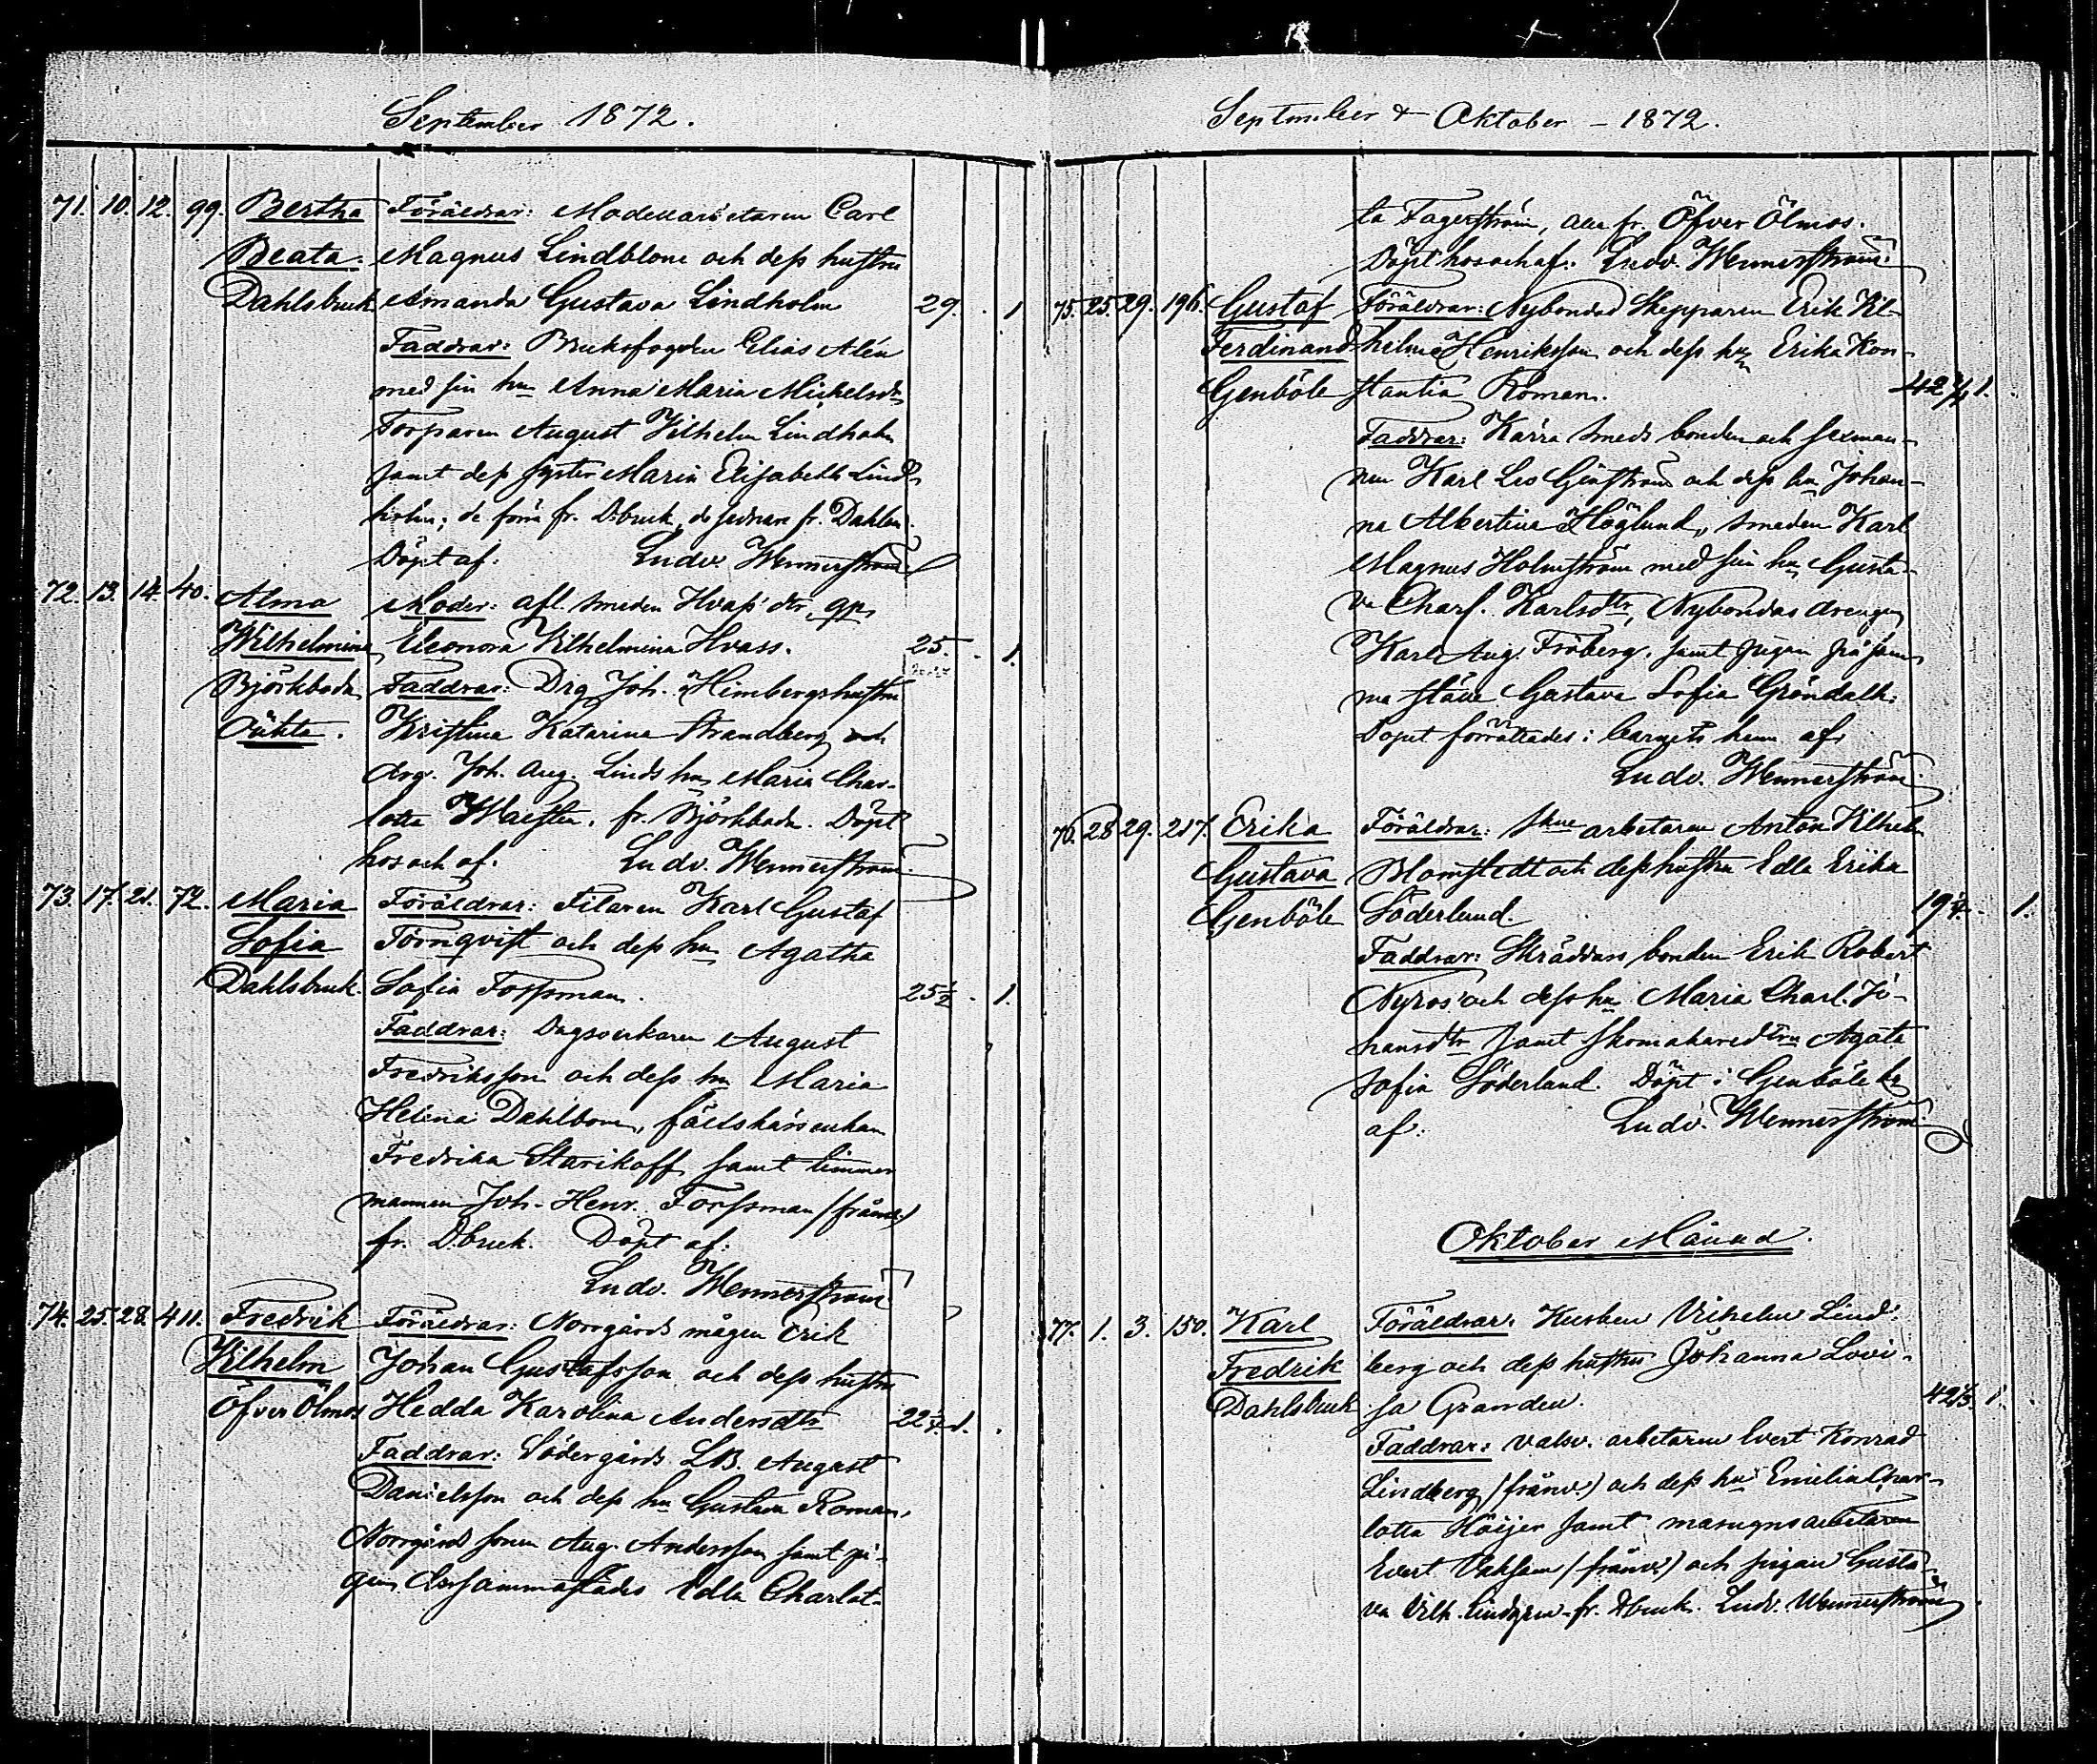 September 1872.
71. 10. 12. 99. Bertha Föräldrar: Modellarbetaren Carl
Beata. Magnus Lindblom och dess hustru
Dahlsbruk Amanda Gustava Lindholm 29. . 1
Faddrar: Bruksfogden Elias Alén
med sin hu Anna Maria Michelsdr
Torparen August Vilhelm Lindholm
samt dess syster Maria Elisabeth Lind-
holm; de förra fr. D.bruk, de sednare fr. Dahlen.
Döpt af: Ludv. Wennerström
72. 13. 14. 40. Alma Moder: afl. smeden Hvass' dtr,
Wilhelmina Eleonora Vilhelmina Hvass. 25. . 1.
Björkboda Faddrar: Drg Joh. Himbergs hustru
Oäkta. Kristina Katarina Strandberg och
drg. Joh. Aug. Linds hu Maria Char-
lotta fr. Björkboda. Döpt
hos och af. Ludv. Wennerström.
73. 17. 21. 72. Maria Föräldrar: Filaren Karl Gustaf
Sofia Törnqvist och dess hu Agatha
Dahlsbruk. Sofia Forssman. 25½ . 1.
Faddrar: Dagsverkaren August
Fredriksson och dess hu Maria
Helena Dahlbom, fältskärsenkan
Fredrika Starikoff samt timmer
mannen Joh. Henr. Forssman (frånv.)
fr. D.bruk. Döpt af:
Ludv. Wennerström
74. 25. 28. 411. Fredrik Föräldrar: Norrgårds mågen Erik
Vilhelm Johan Gustafsson och dess hustru
Öfver Ölmos Hedda Karolina Andersdtr 22½ 1. .
Faddrar: Södergårds LB. August
Danielsson och dess hu Gustava Roman,
Norrgårds sonen Aug. Andersson samt pi-
gan dersammastädes Edla Charlot-
September & Oktober – 1872.
ta Fagerström, alla fr. Öfver Ölmos.
Döpt hos och af: Ludv. Wennerström.
75. 25. 29. 196. Gustaf Föräldrar: Nybondas Skepparen Erik Vil-
Ferdinand helm Henriksson och dess hu Erika Kon-
Genböle stantia Roman. 42 1.
Faddrar: Kärra Smeds bonden och sexman-
nen Karl Leo och dess hu Johan-
na Albertina Höglund, smeden Karl
Magnus Holmström med sin hu Gusta-
va Charl. Karlsdtr, Nybondas drengen
Karl Aug. Fröberg, samt pigan på sam-
ma ställe Gustava Sofia Gröndahl.
Dopet förrättades i barnets hem af
Ludv. Wennerström.
76. 28 29. 217. Erika Föräldrar: arbetaren Anton Vilhelm
Gustava Blomstedt och dess hustru Edla Erika
Genböle Söderlund. 19¼ . 1.
Faddrar: Skräddars bonden Erik Robert
Nyroos och dess hu Maria Charl. Jo-
hansdtr samt skomakaredtrn Agata
Sofia Söderlund. Döpt i Genböle by
af: Ludv. Wennerström
Oktober Månad.
77. 1. 3. 150. Karl Föräldrar: Kusken Vilhelm Lind-
Fredrik berg och dess hustru Johanna Lovi-
Dahlsbruk sa Grandell. 42⅓. 1.
Faddrar: valsv. arbetaren Evert Konrad
Lindberg (frånv.) och dess hu Emelia Char-
lotta Höijer samt masugnsarbetaren
Evert (frånv.) och pigan Gusta-
va Vilh. Lindgren fr. Dbruk. Ludv. Wennerström